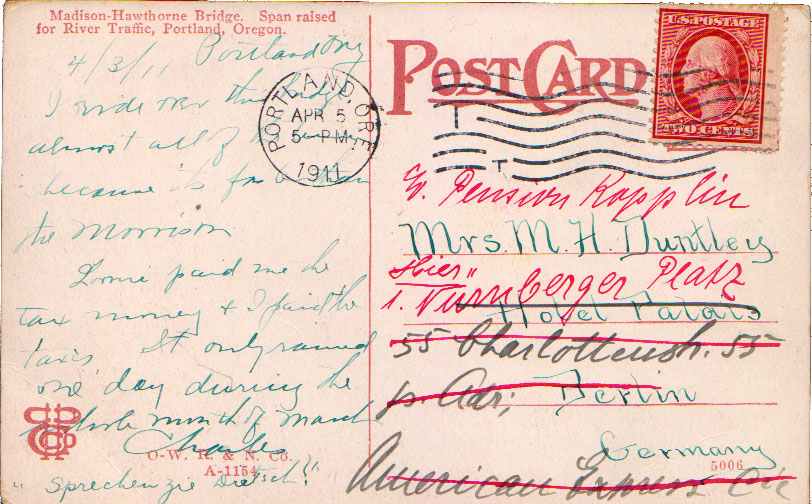 Madison-Hawthorne Bridge. Span raised
for River Traffic, Portland, Oregon.
4/3/11 Portland Org
I ride over this
almost all of the
because it is far better than
the Morrison
Lorne paid me the
tax money & I paid the
taxis. It only rained
one day during the
whole month of March
Charles
"Sprechen zie Dietsch?"
O-W. R. & N. Co.
A-1154
PORTLAND, ORE.
APR 5
5 - PM
1911
POST CARD
U.S. POSTAGE
TWO CENTS
Pension Kopplin
Mrs. M. H. Duntley
Hier"
1. Nurnberger Platz
Hotel Palais
55 Charlottenstr. 55
p. Adr;
Berlin
Germany
5006
American Express